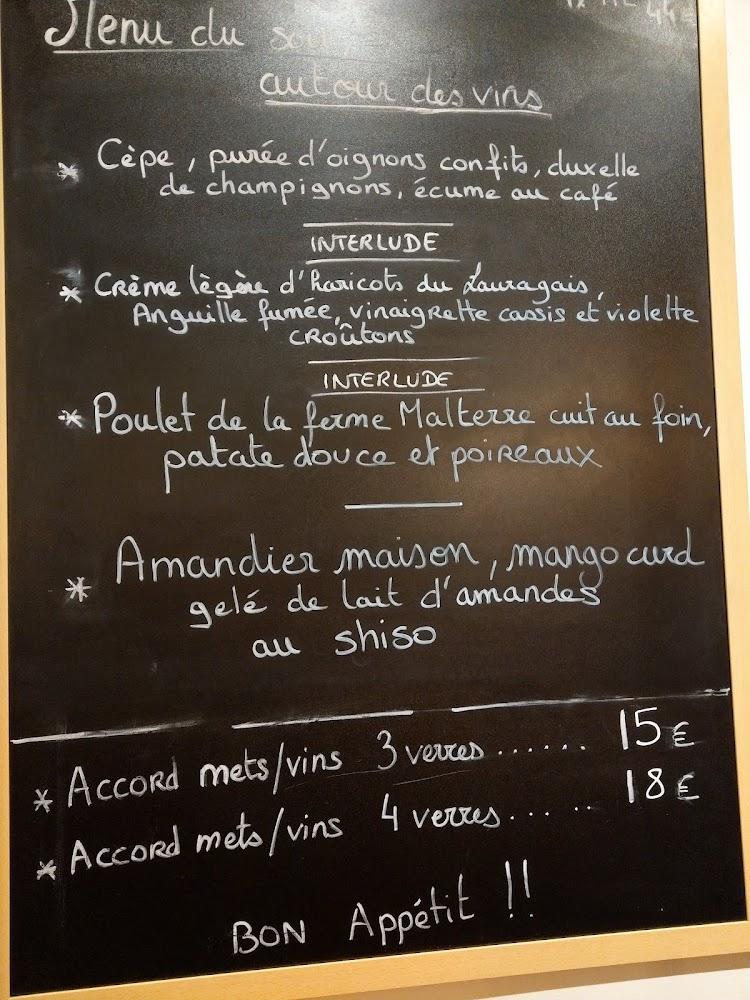 Menu du soir
autour des vins
* Cèpe, purée d'oignons confits, duxelle
de champignons, écume au café
INTERLUDE
* Crème lègère d'haricots du Lauragais,
Anguille fumée, vinaigrette cassis et violette
CROÛTONS
INTERLUDE
* Poulet de la ferme Malterre cuit au foin,
patate douce et poireaux
* Amandier maison, mango curd
gelé de lait d'amandes
au shiso
* Accord mets/vins 3 verres ...... 15€
* Accord mets/vins 4 verres ..... 18€
BON Appétit !!